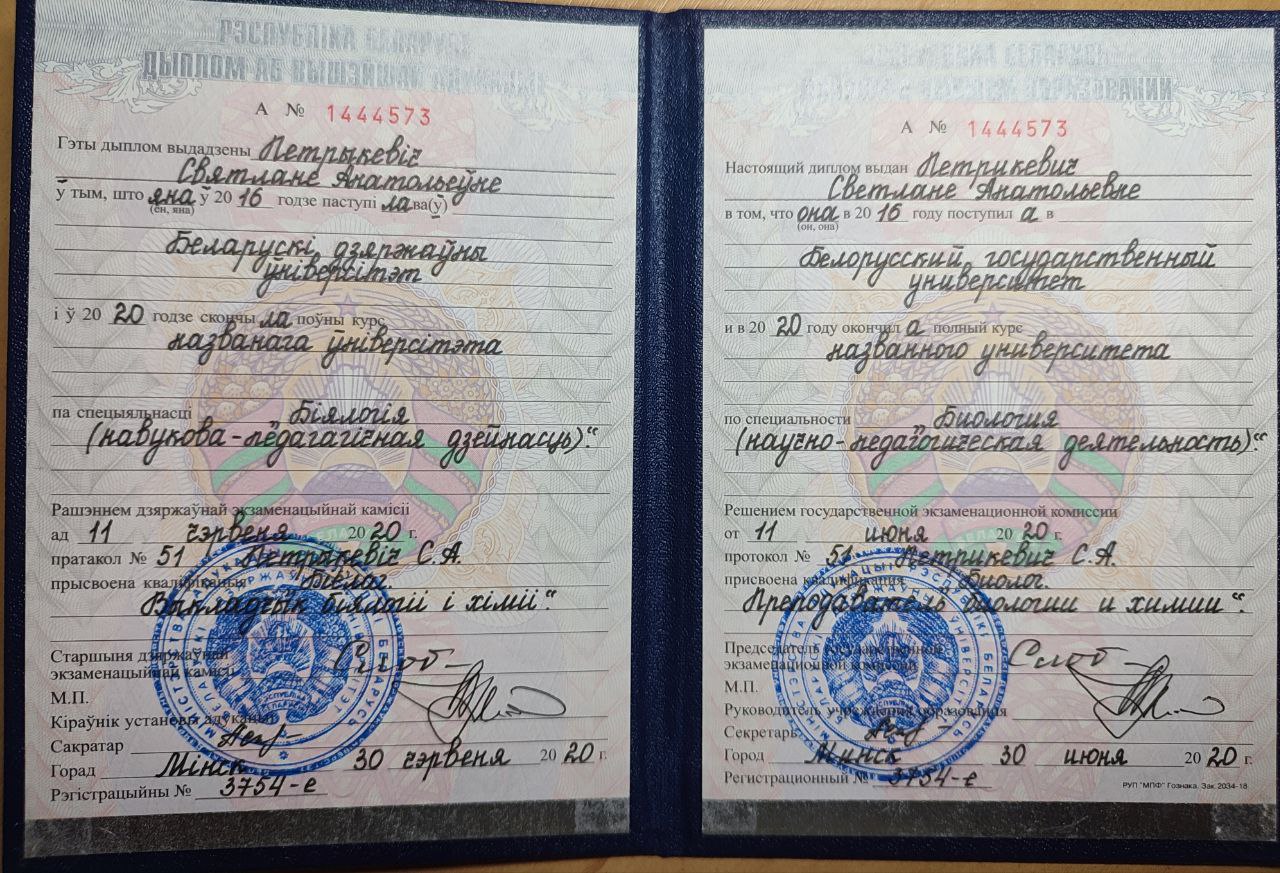 РЭСПУБЛІКА БЕЛАРУСЬ
ДЫПЛОМ АБ ВЫШЭЙШАЙ АДУКАЦЫІ
А № 1444573
Гэты дыплом выдадзены Петрыкевіч
Святлане Анатольеўне
ў тым, што яна ў 2016 годзе паступі ла ва(ў)
(ён, яна)
Беларускі дзяржаўны
ўніверсітэт
і ў 20 20 годзе скончы ла поўны курс
названага ўніверсітэта
па спецыяльнасці „Біялогія
(навукова-педагагічная дзейнасць)“.
Рашэннем дзяржаўнай экзаменацыйнай камісіі
ад 11 чэрвеня 20 20 г.
пратакол № 51 Петрыкевіч С.А.
прысвоена кваліфікацыя „Біёлаг.
Выкладчык біялогіі і хіміі“.
Старшыня дзяржаўнай
экзаменацыйнай камісіі
М.П.
Кіраўнік установы адукацыі
Сакратар
Горад Мінск 30 чэрвеня 20 20 г.
Рэгістрацыйны № 3754-е
А № 1444573
Настоящий диплом выдан Петрикевич
Светлане Анатольевне
в том, что она в 2016 году поступил а в
(он, она)
Белорусский государственный
университет
и в 20 20 году окончил а полный курс
названного университета
по специальности „Биология
(научно-педагогическая деятельность)“.
Решением государственной экзаменационной комиссии
от 11 июня 20 20 г.
протокол № 51 Петрикевич С.А.
присвоена квалификация „Биолог.
Преподаватель биологии и химии“.
Председатель государственной
экзаменационной комиссии
М.П.
Руководитель учреждения образования
Секретарь
Город Минск 30 июня 20 20 г.
Регистрационный № 3754-е
РУП "МПФ" Гознака. Зак. 2034-18